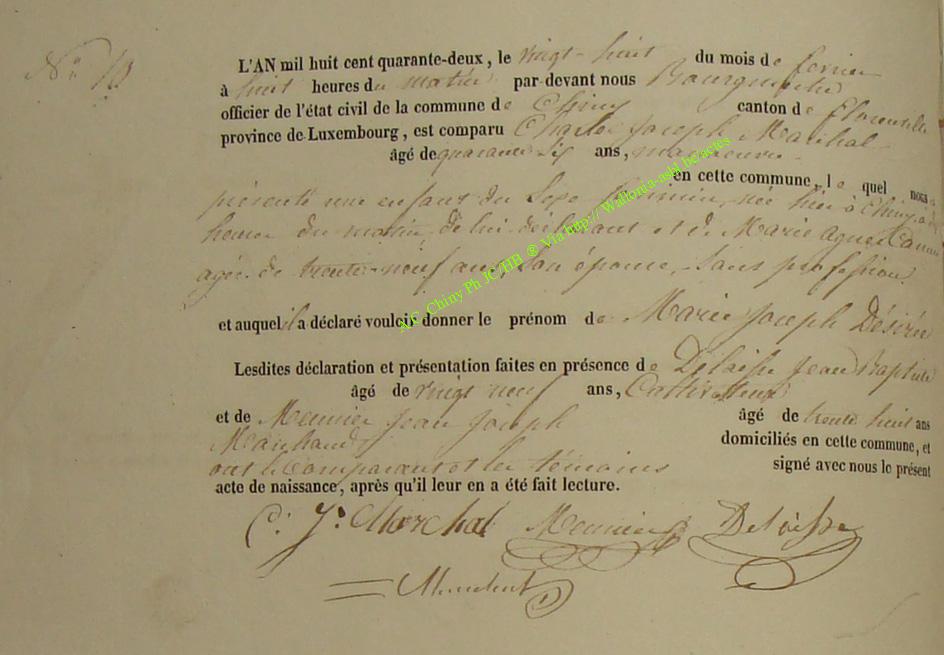 N° 10
L'AN mil huit cent quarante-deux, le vingt-huit du mois de fevrier
à huit heures du matin par-devant nous Bourgmestre
officier de l'état civil de la commune de Chiny canton de Florenville
province de Luxembourg, est comparu Charles Joseph Maréchal
âgé de quarante six ans, manoeuvre
en cette commune, le quel nous a
présenté une enfant du sexe feminin, née hier à Chiny, à
heures du matin de lui déclarant et de Marie Agnes
agée de trente-neuf ans, son épouse, sans profession
et auquel il a déclaré vouloir donner le prénom de Marie Joseph Désirée
Lesdites déclaration et présentation faites en présence de Delaisse Jean Baptiste
âgé de vingt neuf ans, Cultivateur
et de Meunier Jean Joseph âgé de trente huit ans
Marchand domiciliés en cette commune, et
ont le Comparant et les témoins signé avec nous le présent
acte de naissance, après qu'il leur en a été fait lecture.
C. J. Marechal Meunier Delaisse
A.C. Chiny Ph JC/HB © Via http:// Wallonia-asbl.be/actes